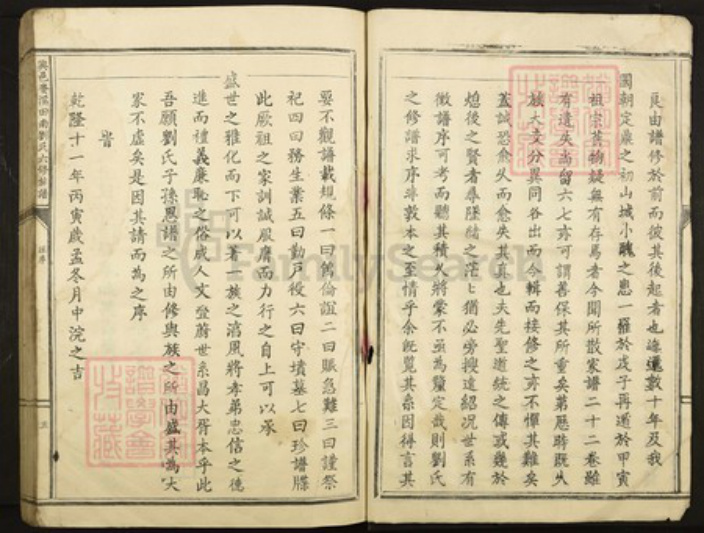 良由譜修於前而彼其後起者也遙遡數十年及我
國朝定鼎之初山城小醜之患一羅於戊子再遁於甲寅
祖宗舊物疑無有存焉者今聞所散家譜二十二卷雖
有遺失尚留六七亦可謂善保其所重矣第歷時既久
族大支分異同各出而今輯而接修之亦不憚其難矣
蓋誠恐愈久而愈失其真也夫先聖道統之傳或幾於
熄後之賢者尋墜緒之茫茫猶必旁搜遠紹况世系有
徵譜序可考而聽其積久將蒙不亟為釐定哉則劉氏
之修譜求序洵敦本之至情乎余既覽其系因得言其
要不觀譜載規條一曰篤倫誼二曰賑急難三曰謹祭
祀四曰務生業五曰勤戶役六曰守墳墓七曰珍譜牒
此厥祖之家訓誠服膺而力行之自上可以承
盛世之雅化而下可以著一族之淳風將孝弟忠信之德
進而禮義廉恥之俗成人文登蔚世系昌大胥本乎此
吾願劉氏子孫思譜之所由修與族之所由盛其為大
家不虛矣是因其請而為之序
旹
乾隆十一年丙寅歲孟冬月中浣之吉
田南劉氏六修族譜
FamilySearch